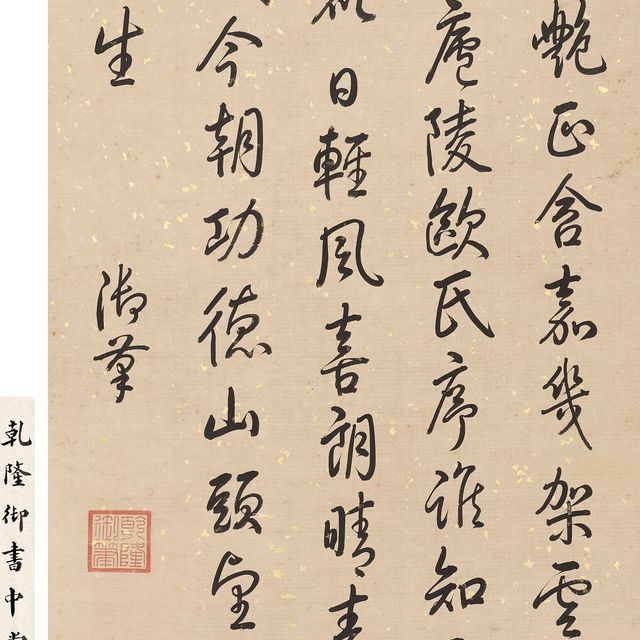 艷正含嘉幾架雲
廬陵歐氏序誰知
日輕風喜朗晴
今朝功德山頭望
生
御筆
乾隆御筆
乾隆御書中